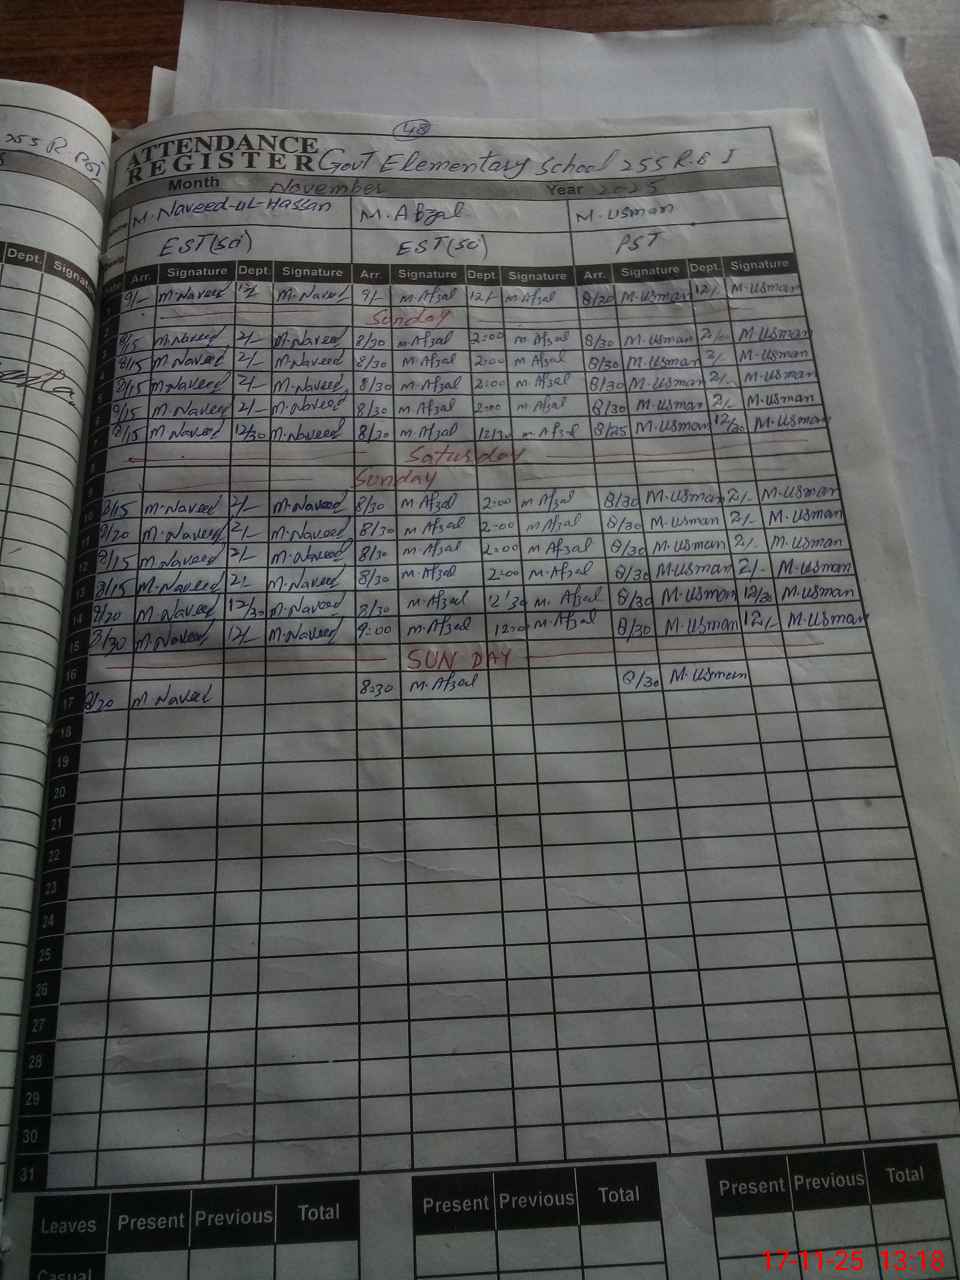 48
ATTENDANCE
REGISTER Govt Elementary School 255 R.B I
Month November Year 2025
M. Naveed-ul-Hassan M. Afzal M. Usman
EST(sci) EST(sci) PST
Arr. Signature Dept. Signature Arr. Signature Dept Signature Arr. Signature Dept. Signature
1 9/- M.Naveed 12/- M.Naveed 9/- M.Afzal 12/- M.Afzal 8/20 M.Usman 12/- M.Usman
2 Sunday
3 8/15 M.Naveed 2/- M.Naveed 8/30 M.Afzal 2:00 M.Afzal 8/30 M.Usman 2/- M.Usman
4 8/15 M.Naveed 2/- M.Naveed 8/30 M.Afzal 2:00 M.Afzal 8/30 M.Usman 2/- M.Usman
5 8/15 M.Naveed 2/- M.Naveed 8/30 M.Afzal 2:00 M.Afzal 8/30 M.Usman 2/- M.Usman
6 8/15 M.Naveed 2/- M.Naveed 8/30 M.Afzal 2:00 M.Afzal 8/30 M.Usman 2/- M.Usman
7 8/15 M.Naveed 12/30 M.Naveed 8/30 M.Afzal 12/30 M.Afzal 8/25 M.Usman 12/30 M.Usman
8 Saturday
9 Sunday
10 8/15 M.Naveed 2/- M.Naveed 8/30 M.Afzal 2:00 M.Afzal 8/30 M.Usman 2/- M.Usman
11 8/20 M.Naveed 2/- M.Naveed 8/30 M.Afzal 2:00 M.Afzal 8/30 M.Usman 2/- M.Usman
12 8/15 M.Naveed 2/- M.Naveed 8/30 M.Afzal 2:00 M.Afzal 8/30 M.Usman 2/- M.Usman
13 8/15 M.Naveed 2/- M.Naveed 8/30 M.Afzal 2:00 M.Afzal 8/30 M.Usman 2/- M.Usman
14 8/20 M.Naveed 12/30 M.Naveed 8/30 M.Afzal 12:30 M.Afzal 8/30 M.Usman 12/30 M.Usman
15 8/30 M.Naveed 12/- M.Naveed 9:00 M.Afzal 12:00 M.Afzal 8/30 M.Usman 12/- M.Usman
16 SUNDAY
17 8/20 M.Naveed 8:30 M.Afzal 8/30 M.Usman
18
19
20
21
22
23
24
25
26
27
28
29
30
31
Leaves Present Previous Total Present Previous Total Present Previous Total
Casual
Dept. Signature
17-11-25 13:18